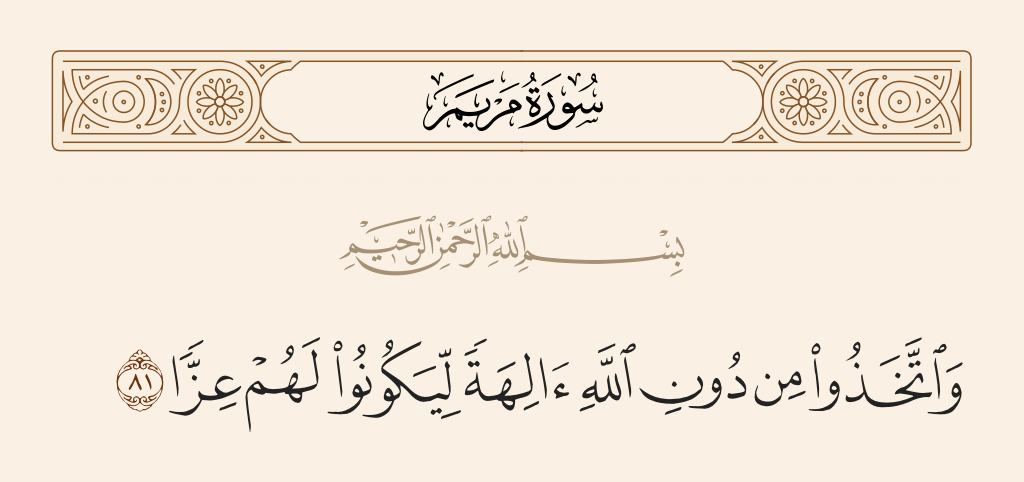 سُورَةُ مَرْيَمَ
بِسْمِ ٱللَّهِ ٱلرَّحْمَٰنِ ٱلرَّحِيمِ
وَٱتَّخَذُوا۟ مِن دُونِ ٱللَّهِ ءَالِهَةً لِّيَكُونُوا۟ لَهُمْ عِزًّا ٨١